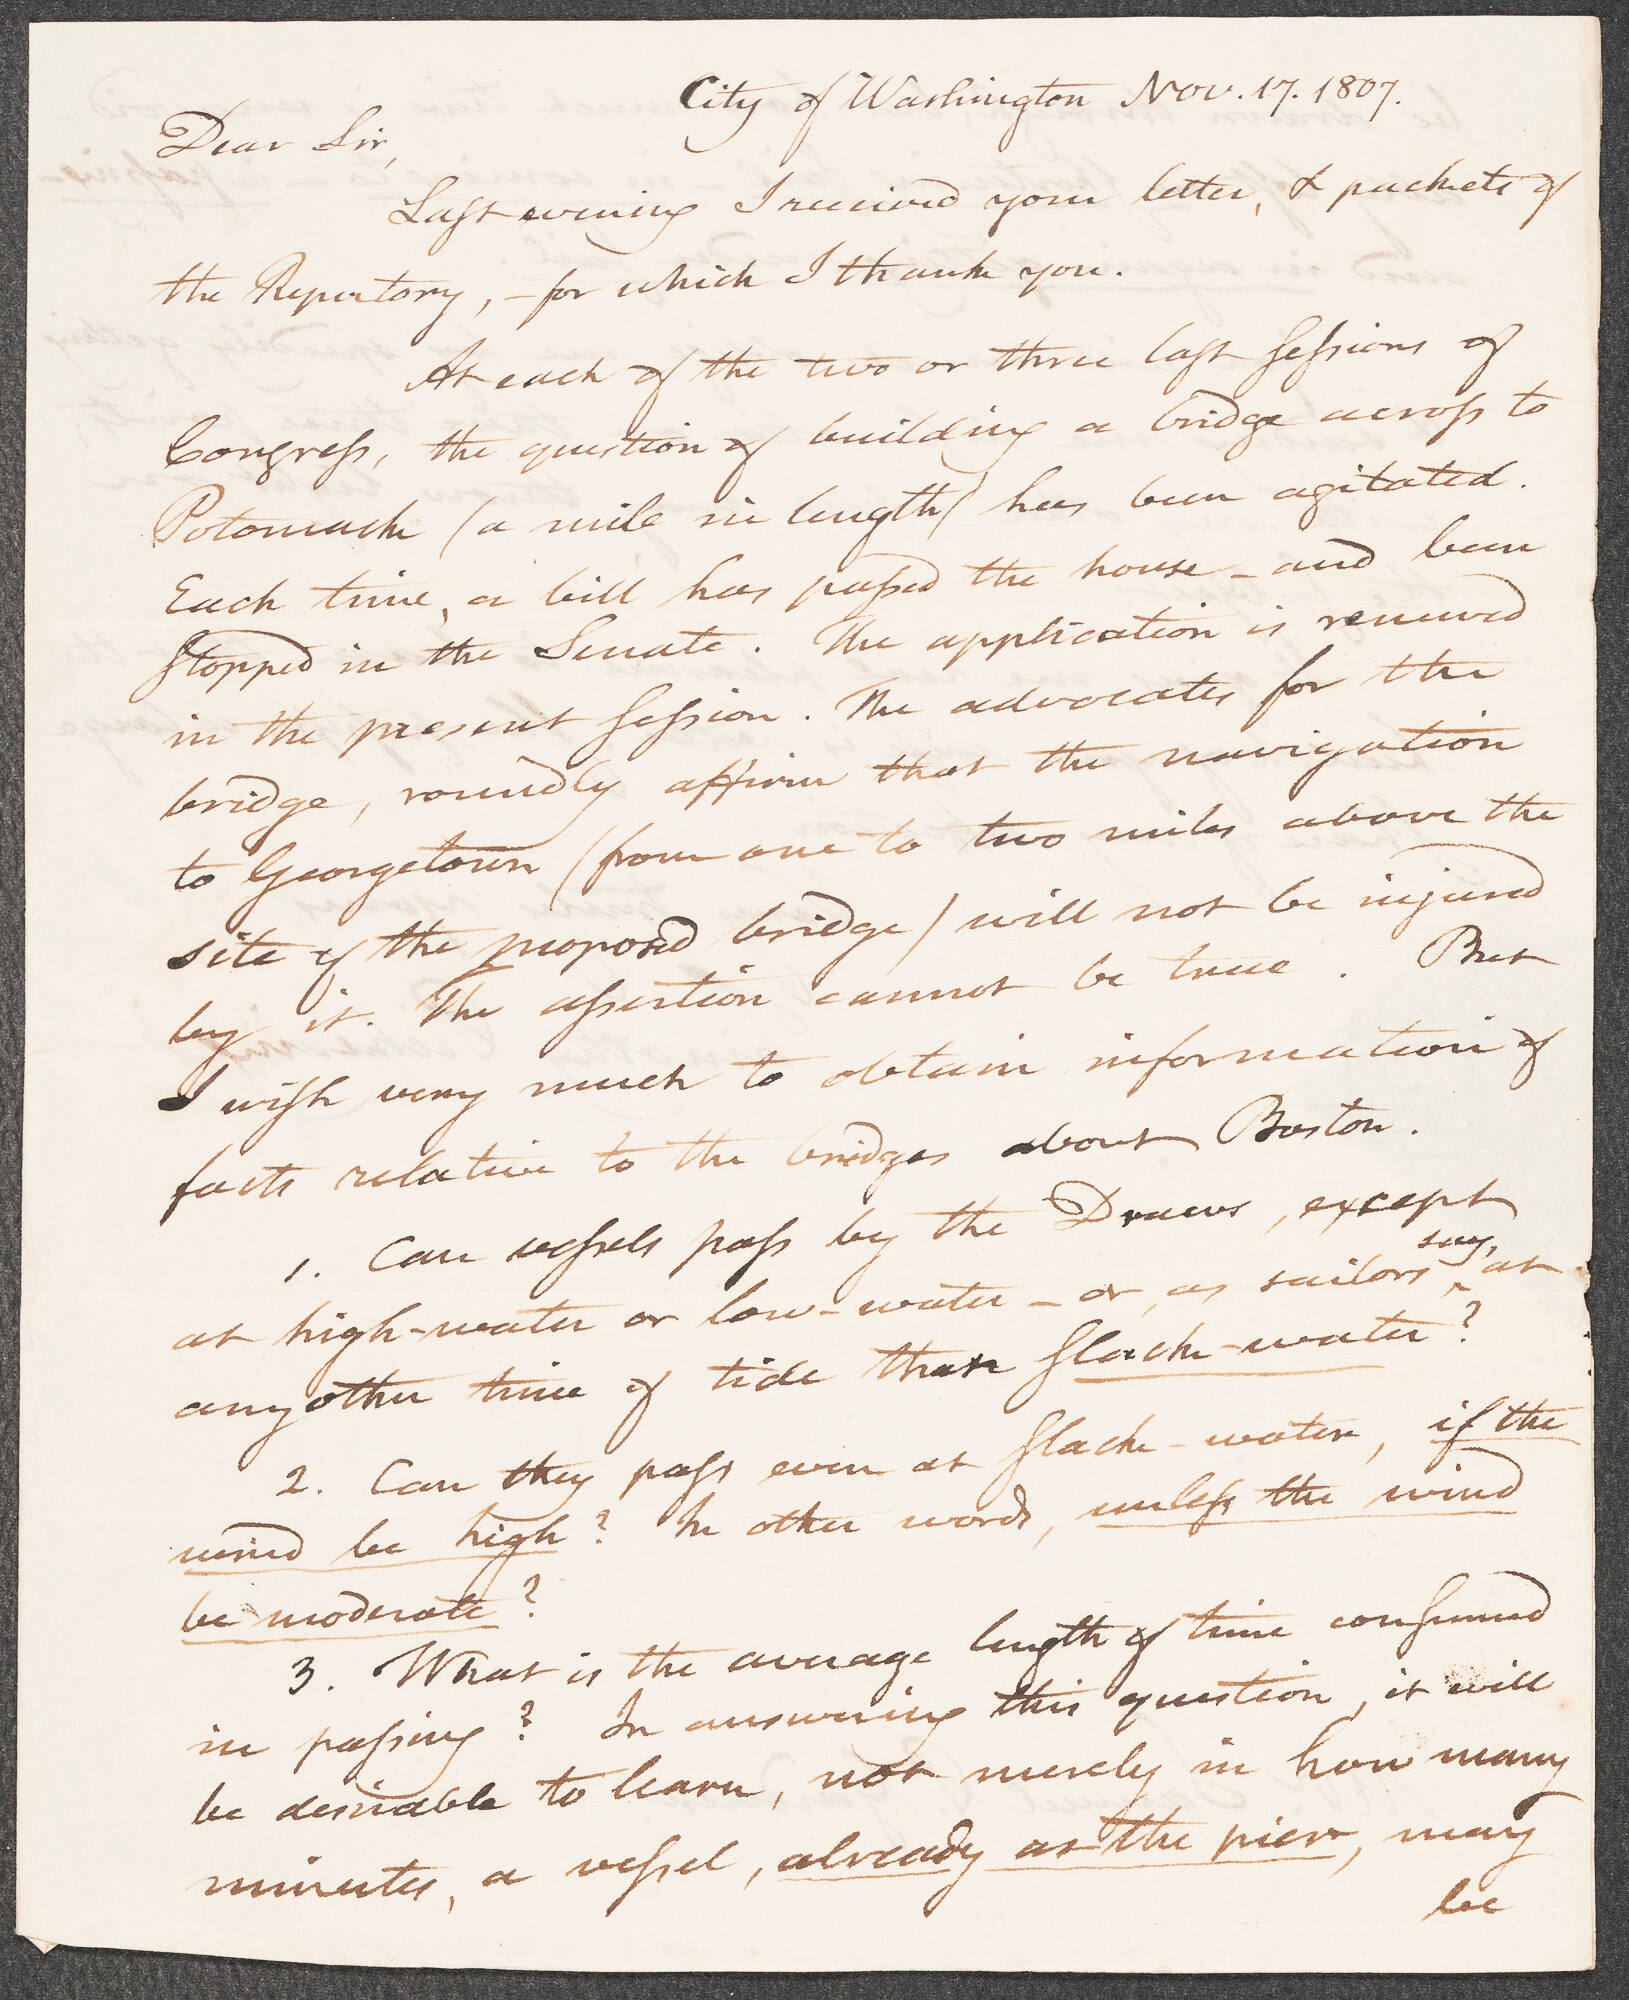 City of Washington Nov. 17. 1807.
Dear Sir,
Last evening I received your letter, & packets of
the Repertory, - for which I thank you.
At each of the two or three last sessions of
Congress, the question of building a bridge across to
Potomack (a mile in length) has been agitated.
Each time, a bill has passed the house - and been
stopped in the Senate. The application is renewed
in the present session. The advocates for the
bridge, roundly affirm that the navigation
to Georgetown (from one to two miles above the
site of the proposed bridge) will not be injured
by it. The assertion cannot be true. But
I wish very much to obtain information of
facts relative to the bridges about Boston.
1. Can vessels pass by the Draws, except
at high-water or low-water - or, as sailors say, at
any other time of tide than slack-water?
2. Can they pass even at slack-water, if the
wind be high? In other words, unless the wind
be moderate?
3. What is the average length of time consumed
in passing? In answering this question, it will
be desirable to learn, not merely in how many
minutes, a vessel, already at the pier, may
be